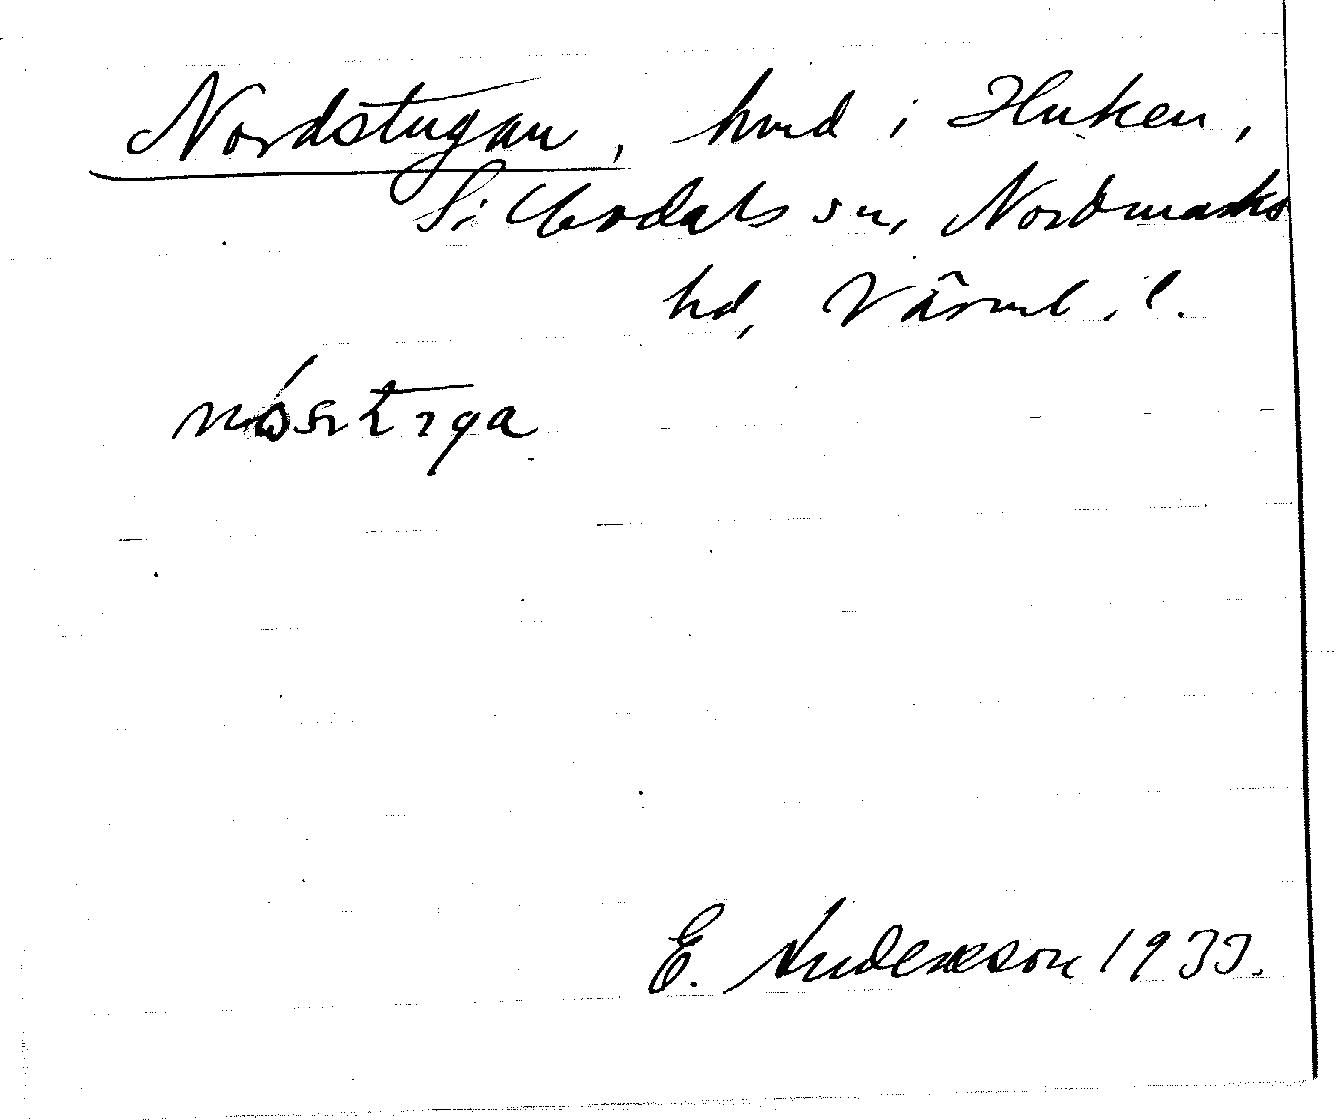 Nordstugan, hmd i Huken,
Silbodals sn, Nordmarks
hd, Värml. l.
E. Andersson 1933.